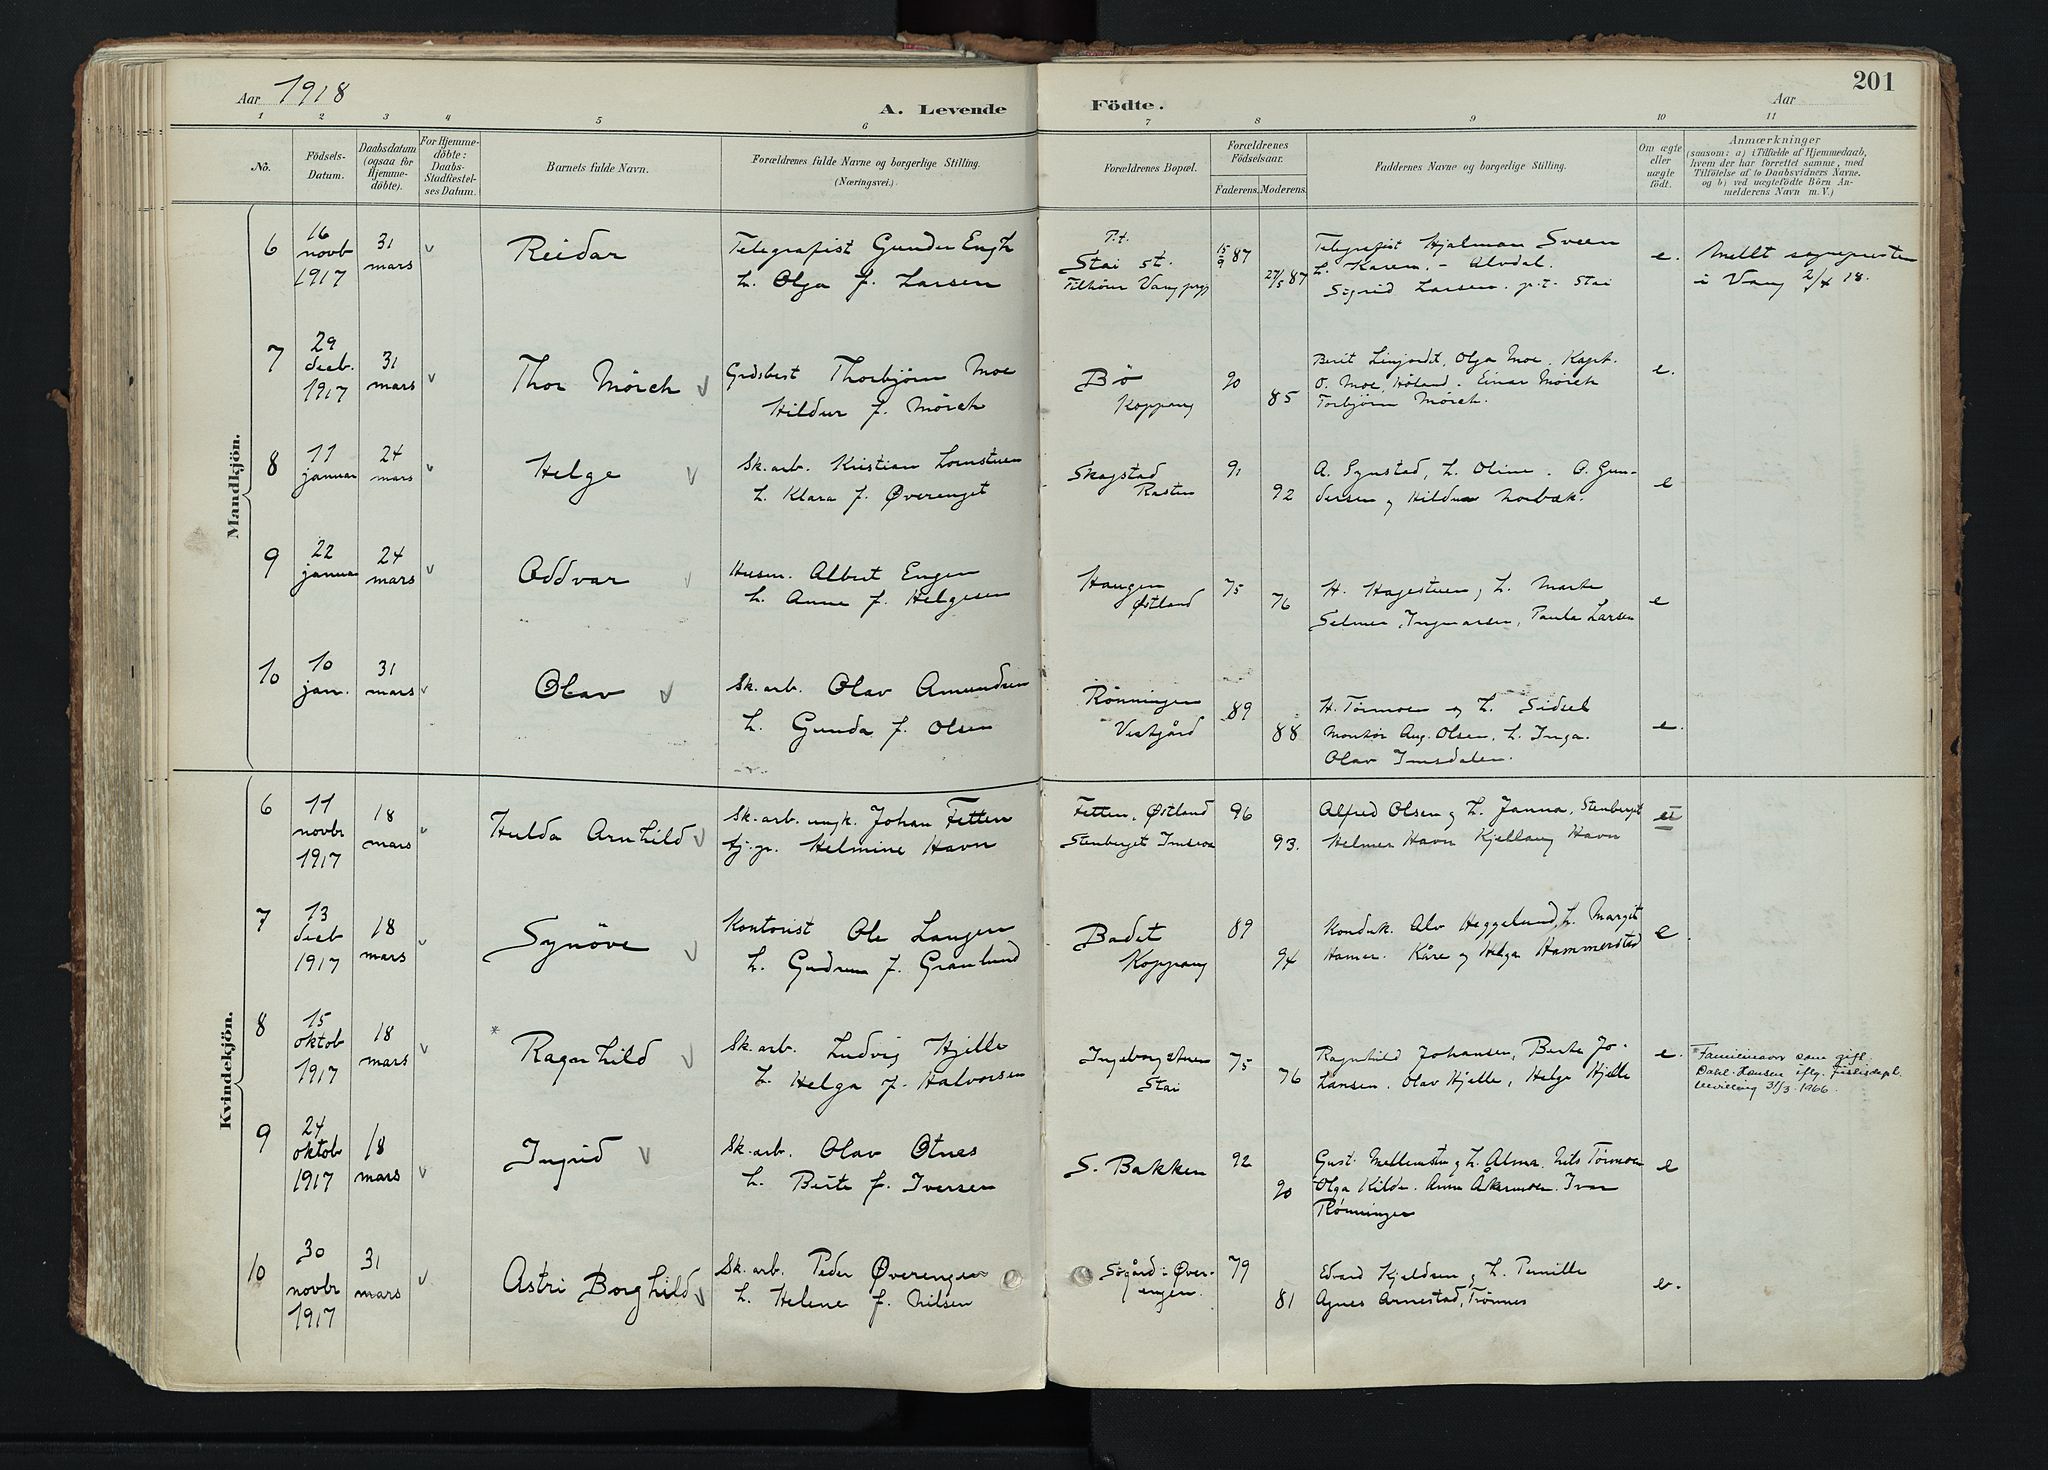 Aar 1918
A. Levende Födte.
Aar
201
1 2 3 4 5 6 7 8 9 10 11
No.
Födsels-
Datum.
Daabsdatum
(ogsaa for
Hjemme-
döbte).
For Hjemme-
döbte:
Daabs-
Stadfæstel-
ses Datum.
Barnets fulde Navn.
Forældrenes fulde Navne og borgerlige Stilling.
(Næringsvei.)
Forældrenes Bopæl.
Forældrenes
Födselsaar.
Faderens. Moderens.
Faddernes Navne og borgerlige Stilling.
Om ægte
eller
uægte
födt.
Anmærkninger
(saasom: a) i Tilfælde af Hjemmedaab,
hvem der har forrettet samme, med
Tilföielse af to Daabsvidners Navne.
og b) ved uægtefödte Börn An-
melderens Navn m. V.)
Mandkjön.
6
16
novb
1917
31
mars
Reidar
Telegrafist Gunder Engh
h. Olga f. Larsen
P.t.
Stai st.
Tilhører Vang
15/9 87
27/5 87
Telegrafist Hjalmar Sveen
h. Karen. - Alvdal.
Sigrid Larsen. p.t. Stai
e.
Meldt sognepresten
i Vang 2/4 18.
7
29
decb.
1917
31
mars
Thor Mörch
Grdsbest Thorbjörn Moe
Hildur f. Mörch
Bö
Koppang
90
85
Berit Linjordet, Olga Moe. Kapt.
O. Moe, Höland. Einar Mörch
Torbjörn Mörch.
e.
8
11
januar
24
mars
Helge
Sk.arb. Kristian Lomstuen
h. Klara f. Øverenget
Skogstad
Rasten
91
92
A. Synstad, h. Oline. O. Gun-
dersen og Hildur Norbæk.
e
9
22
januar
24
mars
Oddvar
Husm. Albert Engen
h. Anne f. Helgesen
Haugen
Østland
75
76
H. Hagestuen, h. Marte
Selmer Ingvarsen, Paula Larsen
e
10
10
jan.
31
mars
Olav
Sk.arb. Olav Amundsen
h. Gunda f. Olsen
Rönningen
Vestgård
89
88
H. Törmoen og h. Sidsel
Montör Aug. Olsen, h. Inga.
Olav Imsdalen.
e.
Kvindekjön.
6
11
novbr
1917
18
mars
Hulda Arnhild
Sk.arb. ungk. Johan Fetten
tj.p. Helmine Havn
Fetten, Østland
Stenberget Imsroa
96
93.
Alfred Olsen og h. Janna, Stenberget
Helmer Havn Kjellaug Havn
7
13
decb
1917
18
mars
Synöve
Kontorist Ole Langen
h. Gudrun f. Granlund
Badet
Koppang
89
94
Konduk. Alv Heggelund, h. Margit
Hamar. Kåre og Helga Hammerstad
e
8
15
oktob
1917
18
mars
* Ragnhild
Sk.arb. Ludvig Hjelle
h. Helga f. Halvorsen
Ingeborgstuen
Stai
75
76
Ragnhild Johansen, Berte Jo-
hansen. Olav Hjelle, Helge Hjelle
e.
* Familienavn som gift:
Dahl-Hansen iflg. justisdep.
bevilling 31/3.1966.
9
24
oktob
1917
18
mars
Ingrid
Sk.arb. Olav Otnes
h. Berte f. Iversen
S. Bakken
92
90
Gust. Mellemsten og h. Alma. Nils Törmoen
Olga Kilde. Anne Åkermoen. Ivar
Rönningen
e
10
30
novbr
1917
31
mars
Astri Borghild
Sk.arb. Peder Øverengen
h. Helene f. Nilsen
Søgård i Øver-
engen.
79
81
Edvard Kjeldsen og h. Pernille
Agnes Arnestad, Trønnes
e.